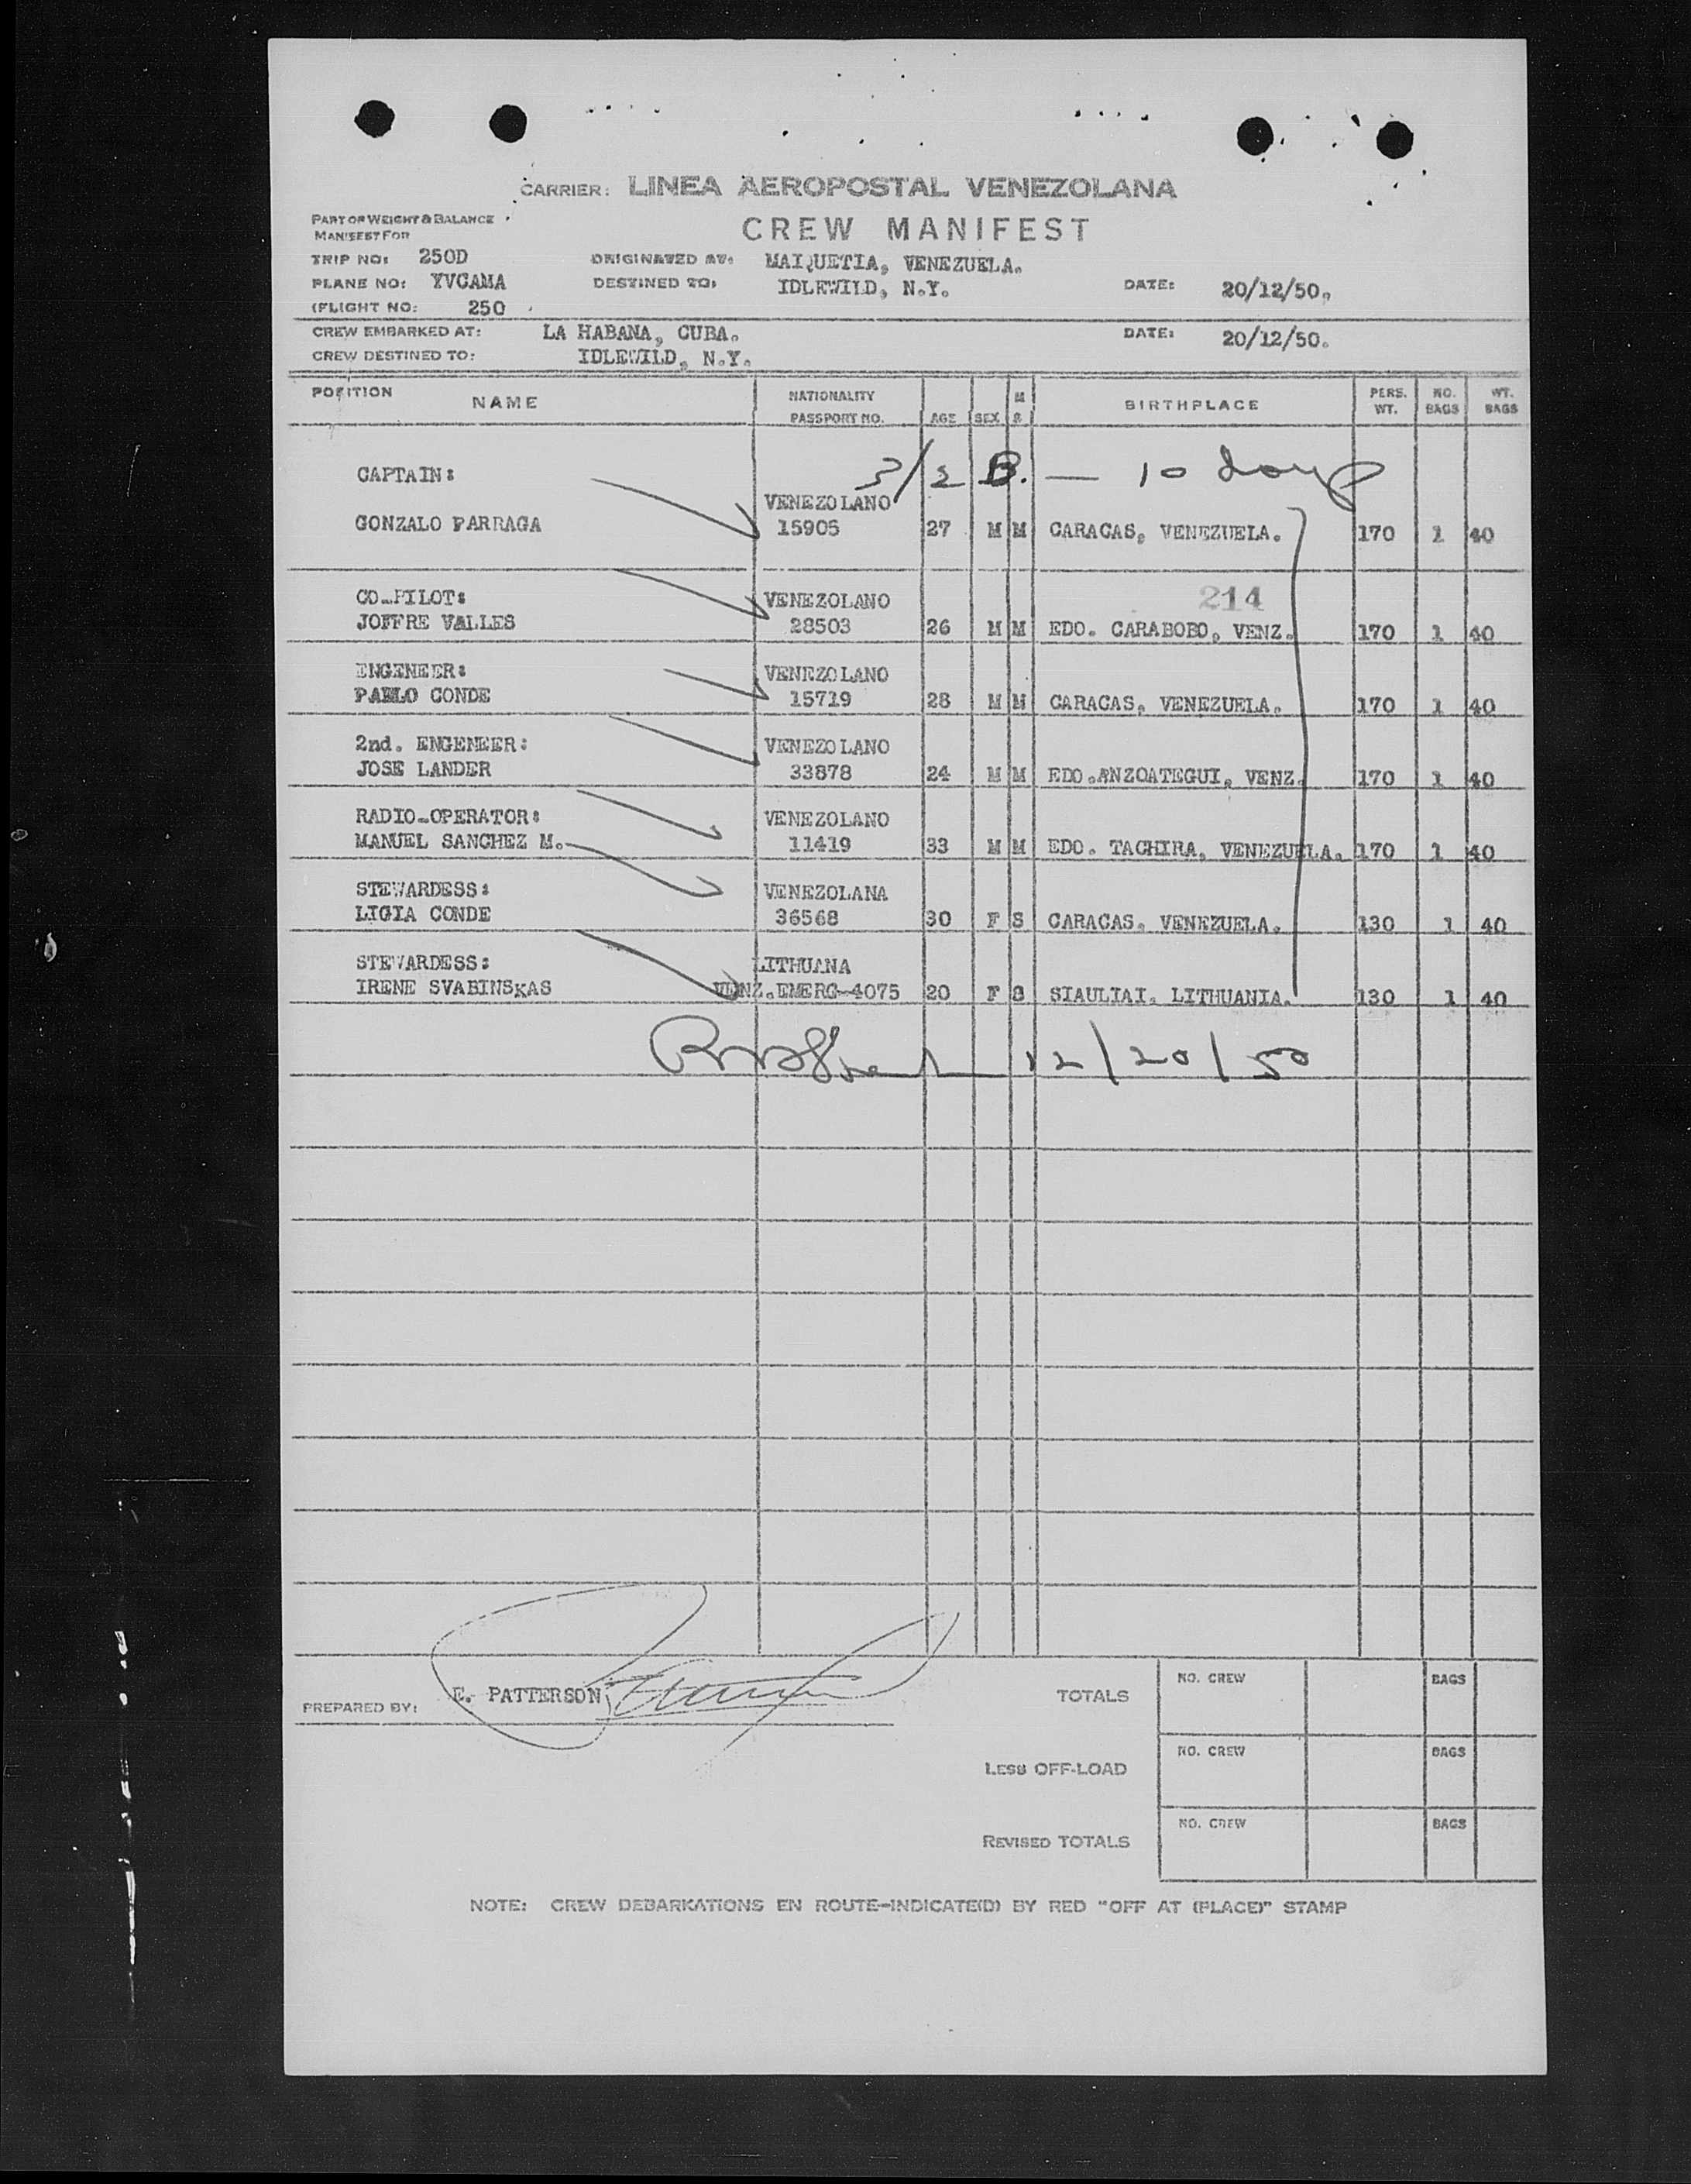 CARRIER: LINEA AEROPOSTAL VENEZOLANA
PART OF WEIGHT & BALANCE
MANIFEST FOR
CREW MANIFEST
TRIP NO: 250D ORIGINATED AT: MAIQUETIA, VENEZUELA.
PLANE NO: YVCAMA DESTINED TO: IDLEWILD, N.Y. DATE: 20/12/50.
(FLIGHT NO: 250
CREW EMBARKED AT: LA HABANA, CUBA. DATE: 20/12/50.
CREW DESTINED TO: IDLEWILD, N.Y.
POSITION NAME NATIONALITY PASSPORT NO. AGE SEX M S BIRTHPLACE PERS. WT. NO. BAGS WT. BAGS
3/2 B. — 10 days
CAPTAIN: VENEZOLANO
GONZALO PARRAGA 15905 27 M M CARACAS, VENEZUELA. 170 1 40
214
CO-PILOT: VENEZOLANO
JOFFRE VALLES 28503 26 M M EDO. CARABOBO, VENZ. 170 1 40
ENGENEER: VENEZOLANO
PABLO CONDE 15719 28 M M CARACAS, VENEZUELA. 170 1 40
2nd. ENGENEER: VENEZOLANO
JOSE LANDER 33878 24 M M EDO.ANZOATEGUI, VENZ. 170 1 40
RADIO-OPERATOR: VENEZOLANO
MANUEL SANCHEZ M. 11419 33 M M EDO. TACHIRA, VENEZUELA. 170 1 40
STEWARDESS: VENEZOLANA
LIGIA CONDE 36568 30 F S CARACAS, VENEZUELA. 130 1 40
STEWARDESS: LITHUANA
IRENE SVABINSKAS VENZ.EMERG-4075 20 F S SIAULIAI, LITHUANIA. 130 1 40
12/20/50
PREPARED BY: E. PATTERSON
TOTALS NO. CREW BAGS
LESS OFF-LOAD NO. CREW BAGS
REVISED TOTALS NO. CREW BAGS
NOTE: CREW DEBARKATIONS EN ROUTE-INDICATE(D) BY RED "OFF AT (PLACE)" STAMP